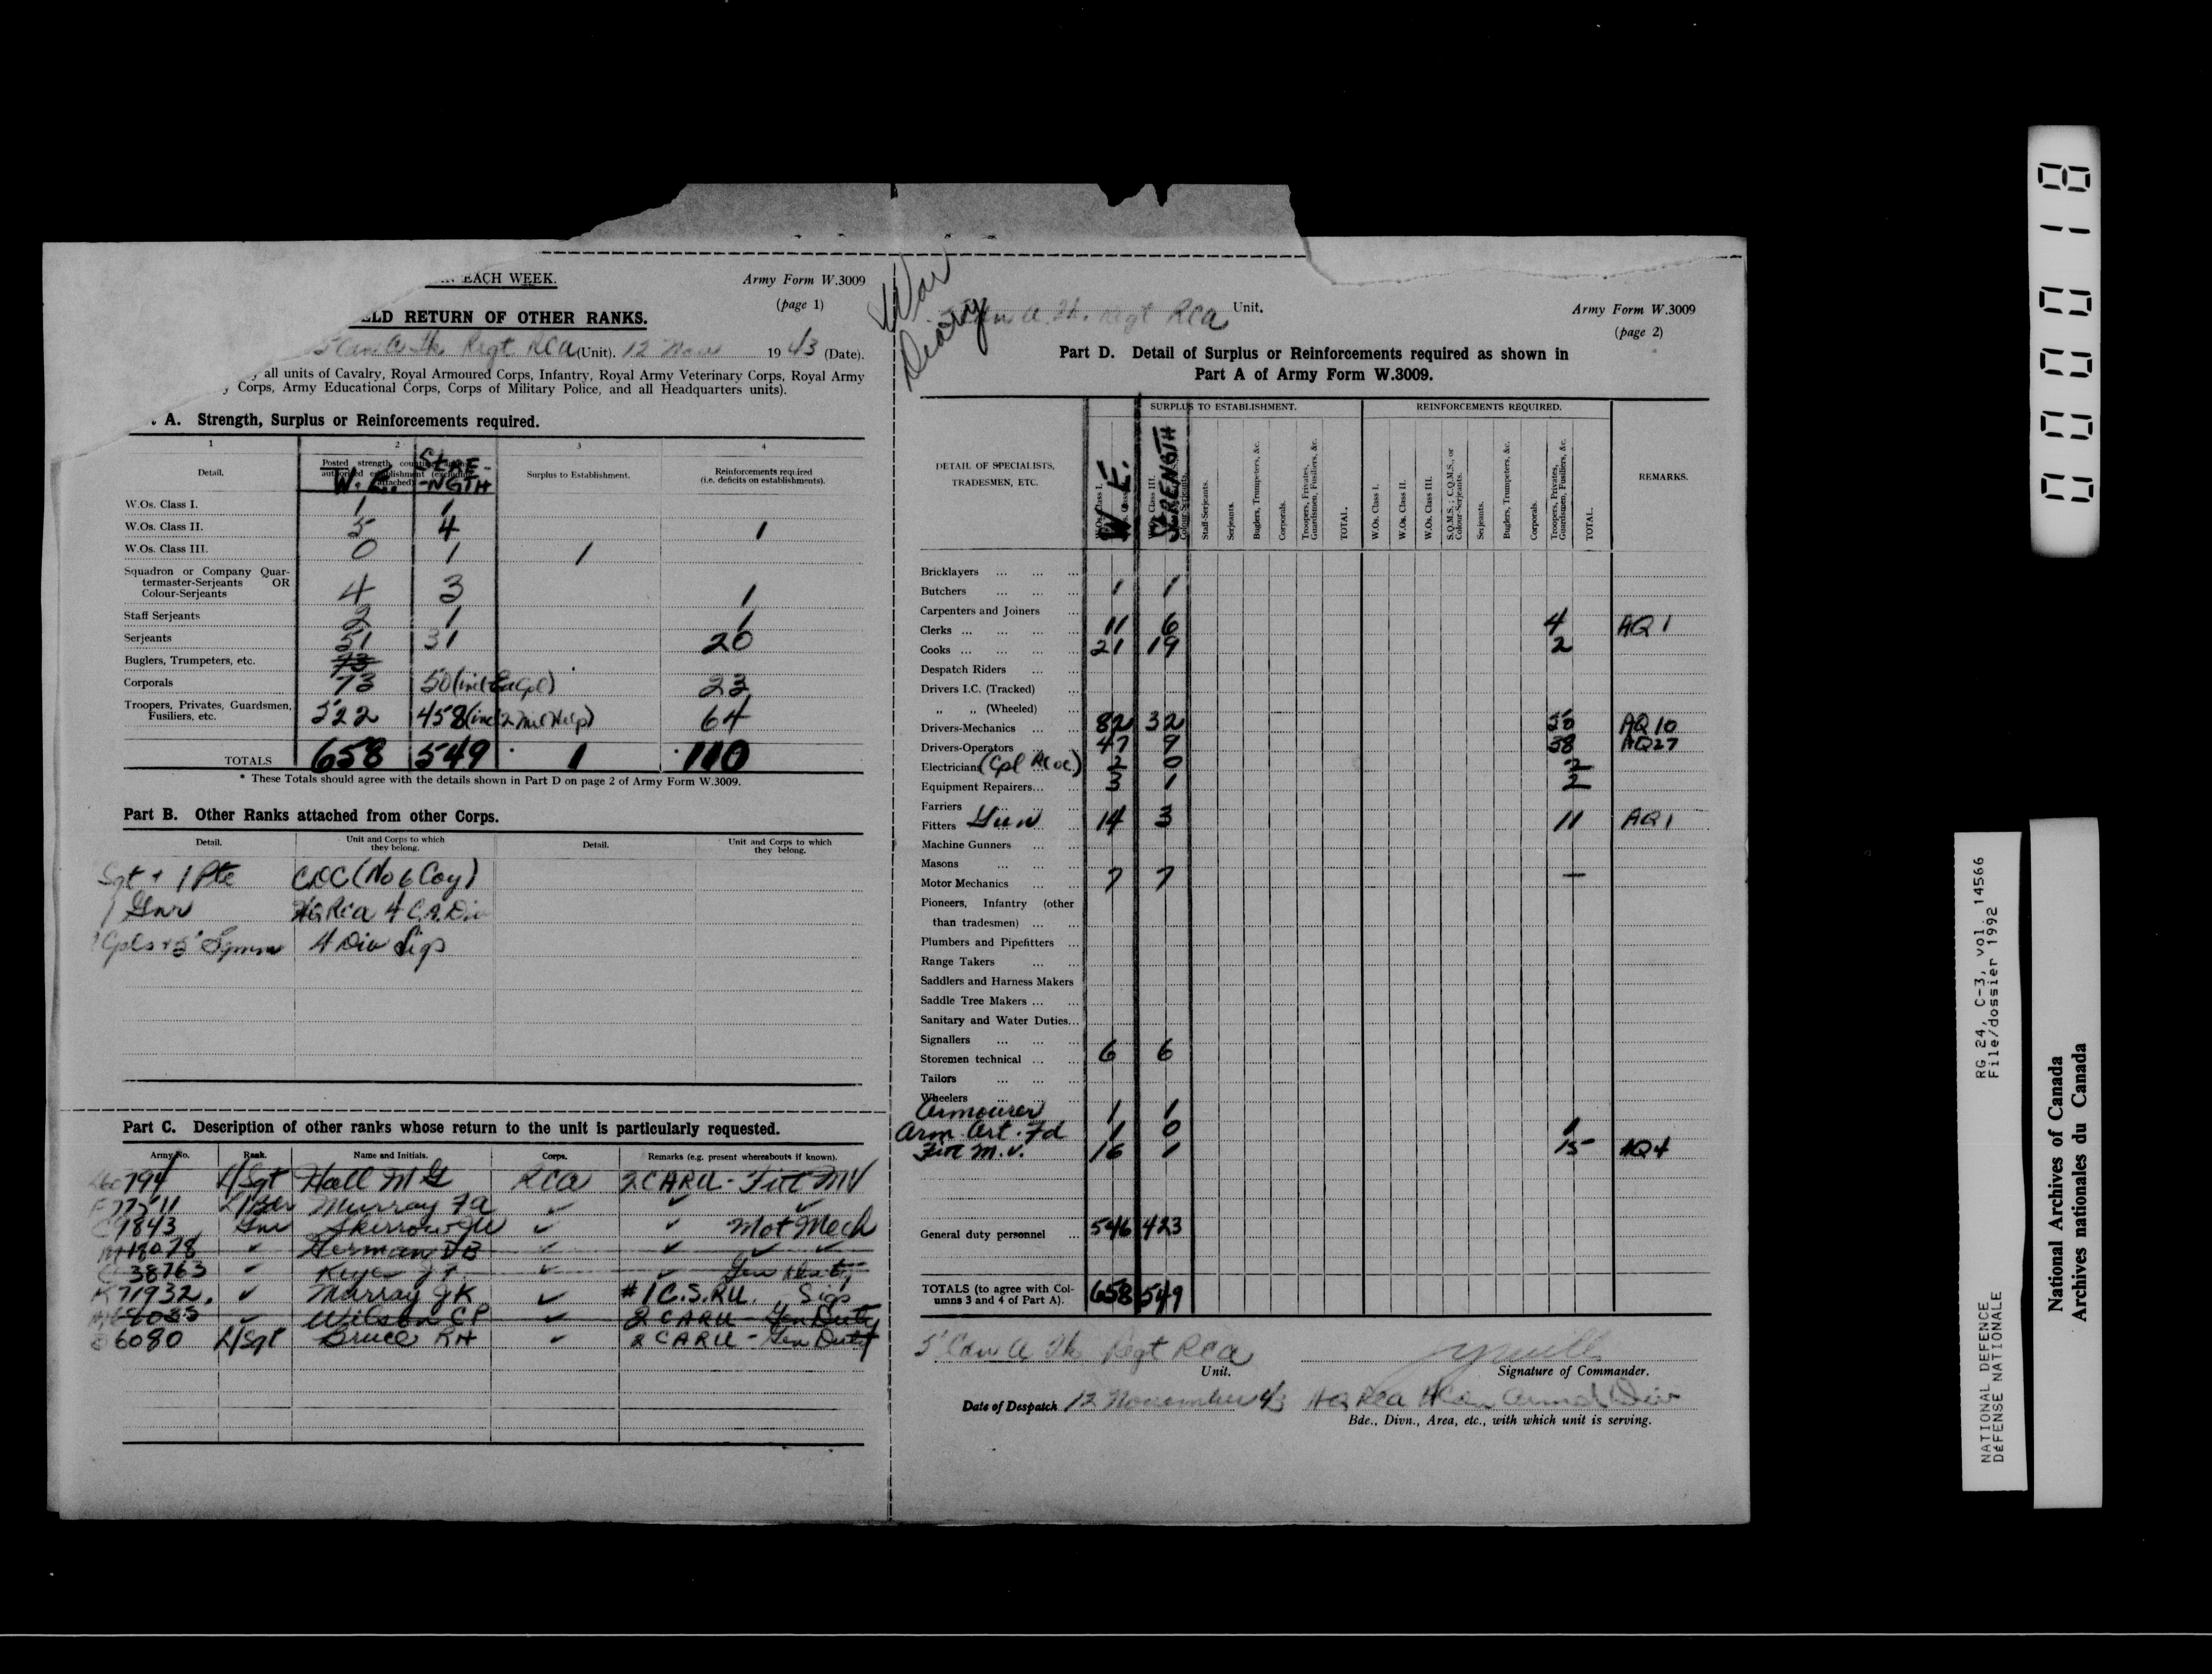 EACH WEEK.
Army Form W.3009
(page 1)
LD RETURN OF OTHER RANKS.
5 Can A Tk Regt RCA (Unit). 12 Nov 1943 (Date).
all units of Cavalry, Royal Armoured Corps, Infantry, Royal Army Veterinary Corps, Royal Army
Corps, Army Educational Corps, Corps of Military Police, and all Headquarters units).
A. Strength, Surplus or Reinforcements required.
1 2 3 4
Detail. Posted strength, authorized establishment (excluding attached) W.E. STRE-NGTH Surplus to Establishment. Reinforcements required (i.e. deficits on establishments).
W.Os. Class I. 1 1
W.Os. Class II. 5 4 1
W.Os. Class III. 0 1 1
Squadron or Company Quar-
termaster-Serjeants OR
Colour-Serjeants 4 3 1
Staff Serjeants 2 1 1
Serjeants 51 31 20
Buglers, Trumpeters, etc. 73
Corporals 73 50 (incl 23
Troopers, Privates, Guardsmen,
Fusiliers, etc. 522 458 (incl 64
TOTALS 658 549 1 110
* These Totals should agree with the details shown in Part D on page 2 of Army Form W.3009.
Part B. Other Ranks attached from other Corps.
Detail. Unit and Corps to which they belong. Detail. Unit and Corps to which they belong.
Sgt + 1 Pte CDC (No 6 Coy)
1 Gnr HQ RCA 4 C.A. Div
Cpls + 5 Sgmn 4 Div Sigs
Part C. Description of other ranks whose return to the unit is particularly requested.
Army No. Rank. Name and Initials. Corps. Remarks (e.g. present whereabouts if known).
794 L/Sgt Hall M G RCA 2 CARU - Fitt MV
77511 L/Bdr Murray FA ✓ ✓ ✓
C9843 Gnr Skerrow JW ✓ ✓ Mot Mech
✓ Herman DB ✓ ✓ ✓ ✓
38763 ✓ ✓ ✓ Gen Duty
K71932. ✓ Murray JK ✓ #1 C.S.RU. Sigs
✓ Wilson CP ✓ 2 CARU - Gen Duty
6080 L/Sgt Bruce RH ✓ 2 CARU - Gen Duty
War
Diary
Cdn A. Tk. Regt RCA Unit.
Army Form W.3009
(page 2)
Part D. Detail of Surplus or Reinforcements required as shown in
Part A of Army Form W.3009.
SURPLUS TO ESTABLISHMENT. REINFORCEMENTS REQUIRED.
DETAIL OF SPECIALISTS,
TRADESMEN, ETC.
W.Os. Class I.
W.E.
W.Os. Class III.
STRENGTH
Colour-Serjeants.
Staff-Serjeants.
Serjeants.
Buglers, Trumpeters, &c.
Corporals.
Troopers, Privates, Guardsmen, Fusiliers, &c.
TOTAL.
W.Os. Class I.
W.Os. Class II.
W.Os. Class III.
S.Q.M.S.; C.Q.M.S., or Colour-Serjeants.
Serjeants.
Buglers, Trumpeters, &c.
Corporals.
Troopers, Privates, Guardsmen, Fusiliers, &c.
TOTAL.
REMARKS.
Bricklayers
Butchers 1 1
Carpenters and Joiners
Clerks 11 6 4 AQ 1
Cooks 21 19 2
Despatch Riders
Drivers I.C. (Tracked)
„ „ (Wheeled)
Drivers-Mechanics 82 32 50 AQ 10
Drivers-Operators 47 9 38 AQ27
Electricians 2 0 2
Equipment Repairers 3 1 2
Farriers
Fitters Gun 14 3 11 AQ1
Machine Gunners
Masons
Motor Mechanics 7 7 —
Pioneers, Infantry (other
than tradesmen)
Plumbers and Pipefitters
Range Takers
Saddlers and Harness Makers
Saddle Tree Makers
Sanitary and Water Duties
Signallers
Storemen technical 6 6
Tailors
Wheelers
Armourer 1 1
Arm Art. Fd 1 0 1
Fitt M.V. 16 1 15 AQ4
General duty personnel 546 423
TOTALS (to agree with Col-
umns 3 and 4 of Part A). 658 549
5 Cdn A Tk Regt RCA
Unit.
Signature of Commander.
Date of Despatch 12 November 43 HQ RCA 4 Can Armd Div
Bde., Divn., Area, etc., with which unit is serving.
000018
RG 24, C-3, vol. 14566
File/dossier 1992
NATIONAL DEFENCE
DÉFENSE NATIONALE
National Archives of Canada
Archives nationales du Canada